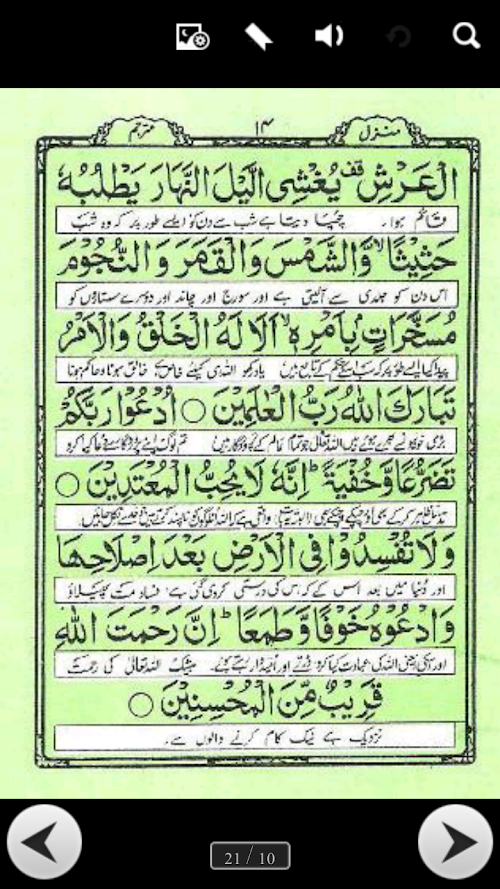 منزل ۱۴ مترجم
الْعَرْشِ قف يُغْشِى الَّيْلَ النَّهَارَ يَطْلُبُهٗ
قائم ہوا۔ چھپا دیتا ہے شب سے دن کو ایسے طور پر کہ وہ شب
حَثِيْثًا ۙ وَّالشَّمْسَ وَالْقَمَرَ وَالنُّجُوْمَ
اس دن کو جلدی سے آلیتی ہے اور سورج اور چاند اور دوسرے ستاروں کو
مُسَخَّرٰتٍ بِاَمْرِهٖ ؕ اَلَا لَهُ الْخَلْقُ وَالْاَمْرُ
پیدا کیا ایسے طور پر کہ سب اسکے حکم کے تابع ہیں یاد رکھو اللہ ہی کیلئے خاص ہے خالق ہونا و حاکم ہونا
تَبَارَكَ اللهُ رَبُّ الْعٰلَمِيْنَ ○ اُدْعُوْا رَبَّكُمْ
بڑی خوبیوں سے بھرے ہوئے ہیں اللہ تعالٰی جو تمام عالم کے پروردگار ہیں تم لوگ اپنے پروردگار سے دعا کیا کرو
تَضَرُّعًا وَّخُفْيَةً ؕ اِنَّهٗ لَا يُحِبُّ الْمُعْتَدِيْنَ ○
وَلَا تُفْسِدُوْا فِى الْاَرْضِ بَعْدَ اِصْلَاحِهَا
اور دنیا میں بعد اس کے کہ اس کی درستی کر دی گئی ہے فساد مت پھیلاؤ
وَادْعُوْهُ خَوْفًا وَّطَمَعًا ؕ اِنَّ رَحْمَتَ اللهِ
اور اسکی یعنی اللہ کی عبادت کیا کرو ڈرتے اور امیدوار رہتے ہوئے۔ بیشک اللہ تعالٰی کی رحمت
قَرِيْبٌ مِّنَ الْمُحْسِنِيْنَ ○
نزدیک ہے نیک کام کرنے والوں سے۔
21 / 10